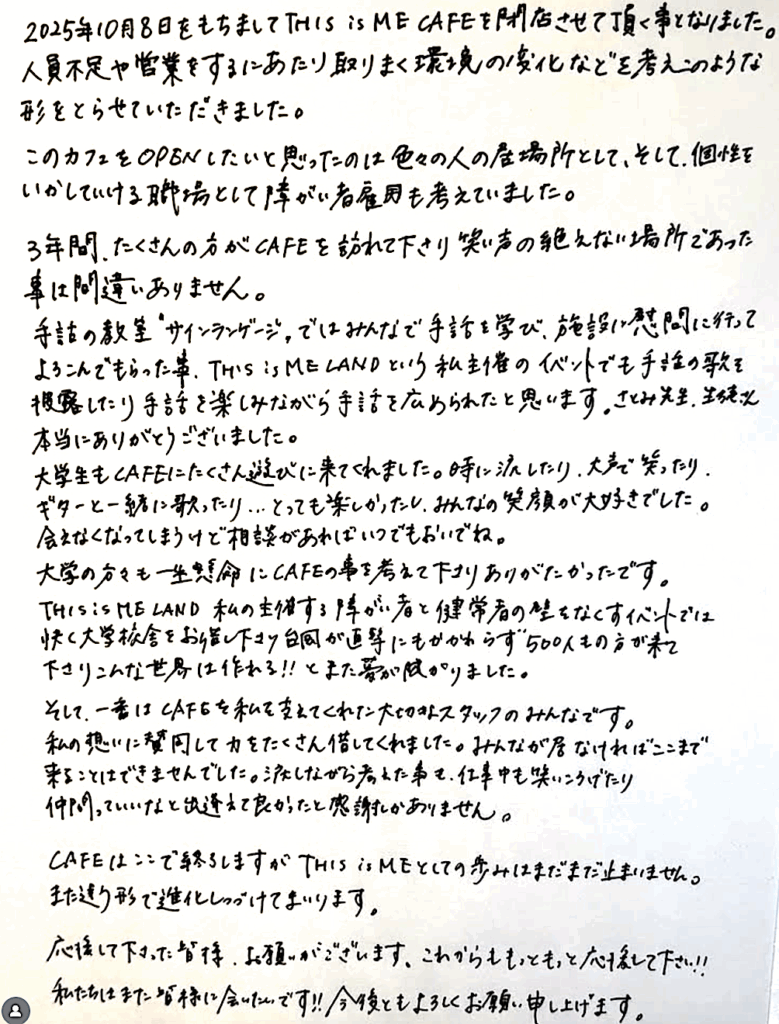 2025年10月8日をもちましてTHIS is ME CAFEを閉店させて頂く事となりました。
人員不足や営業をするにあたり取りまく環境の変化などを考えこのような
形をとらせていただきました。
このカフェをOPENしたいと思ったのは色々の人の居場所として、そして、個性を
いかしていける職場として障がい者雇用も考えていました。
3年間、たくさんの方がCAFEを訪れて下さり笑い声の絶えない場所であった
事は間違いありません。
手話の教室"サインランゲージ"ではみんなで手話を学び、施設に慰問に行って
よろこんでもらった事、THIS is ME LANDという私主催のイベントでも手話の歌を
披露したり手話を楽しみながら手話を広められたと思います。さとみ先生、生徒さん
本当にありがとうございました。
大学生もCAFEにたくさん遊びに来てくれました。時に涙したり、大声で笑ったり、
ギターと一緒に歌ったり…とっても楽しかったし、みんなの笑顔が大好きでした。
会えなくなってしまうけど相談があればいつでもおいでね。
大学の方々も一生懸命にCAFEの事を考えて下さりありがたかったです。
THIS is ME LAND 私の主催する障がい者と健常者の壁をなくすイベントでは
快く大学校舎をお貸し下さり台風が直撃にもかかわらず500人もの方が来て
下さりこんな世界は作れる!!とまた夢が広がりました。
そして、一番はCAFEを私を支えてくれた大切なスタッフのみんなです。
私の想いに賛同して力をたくさん借してくれました。みんなが居なければここまで
来ることはできませんでした。涙しながら考えた事も、仕事中も笑いころげたり
仲間っていいなと出逢えて良かったと感謝しかありません。
CAFEはここで終了しますがTHIS is MEとしての歩みはまだまだ止まいません。
また違う形で進化しつづけてまいります。
応援して下さった皆様、お願いがございます、これからももっともっと応援して下さい!!
私たちはまた皆様に会いたいです!!今後ともよろしくお願い申し上げます。